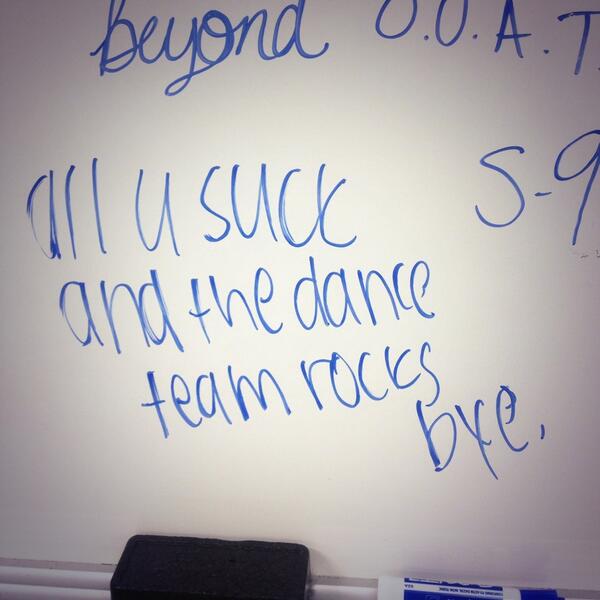 beyond O.O.A.T
S-9
all u suck
and the dance
team rocks
bye.